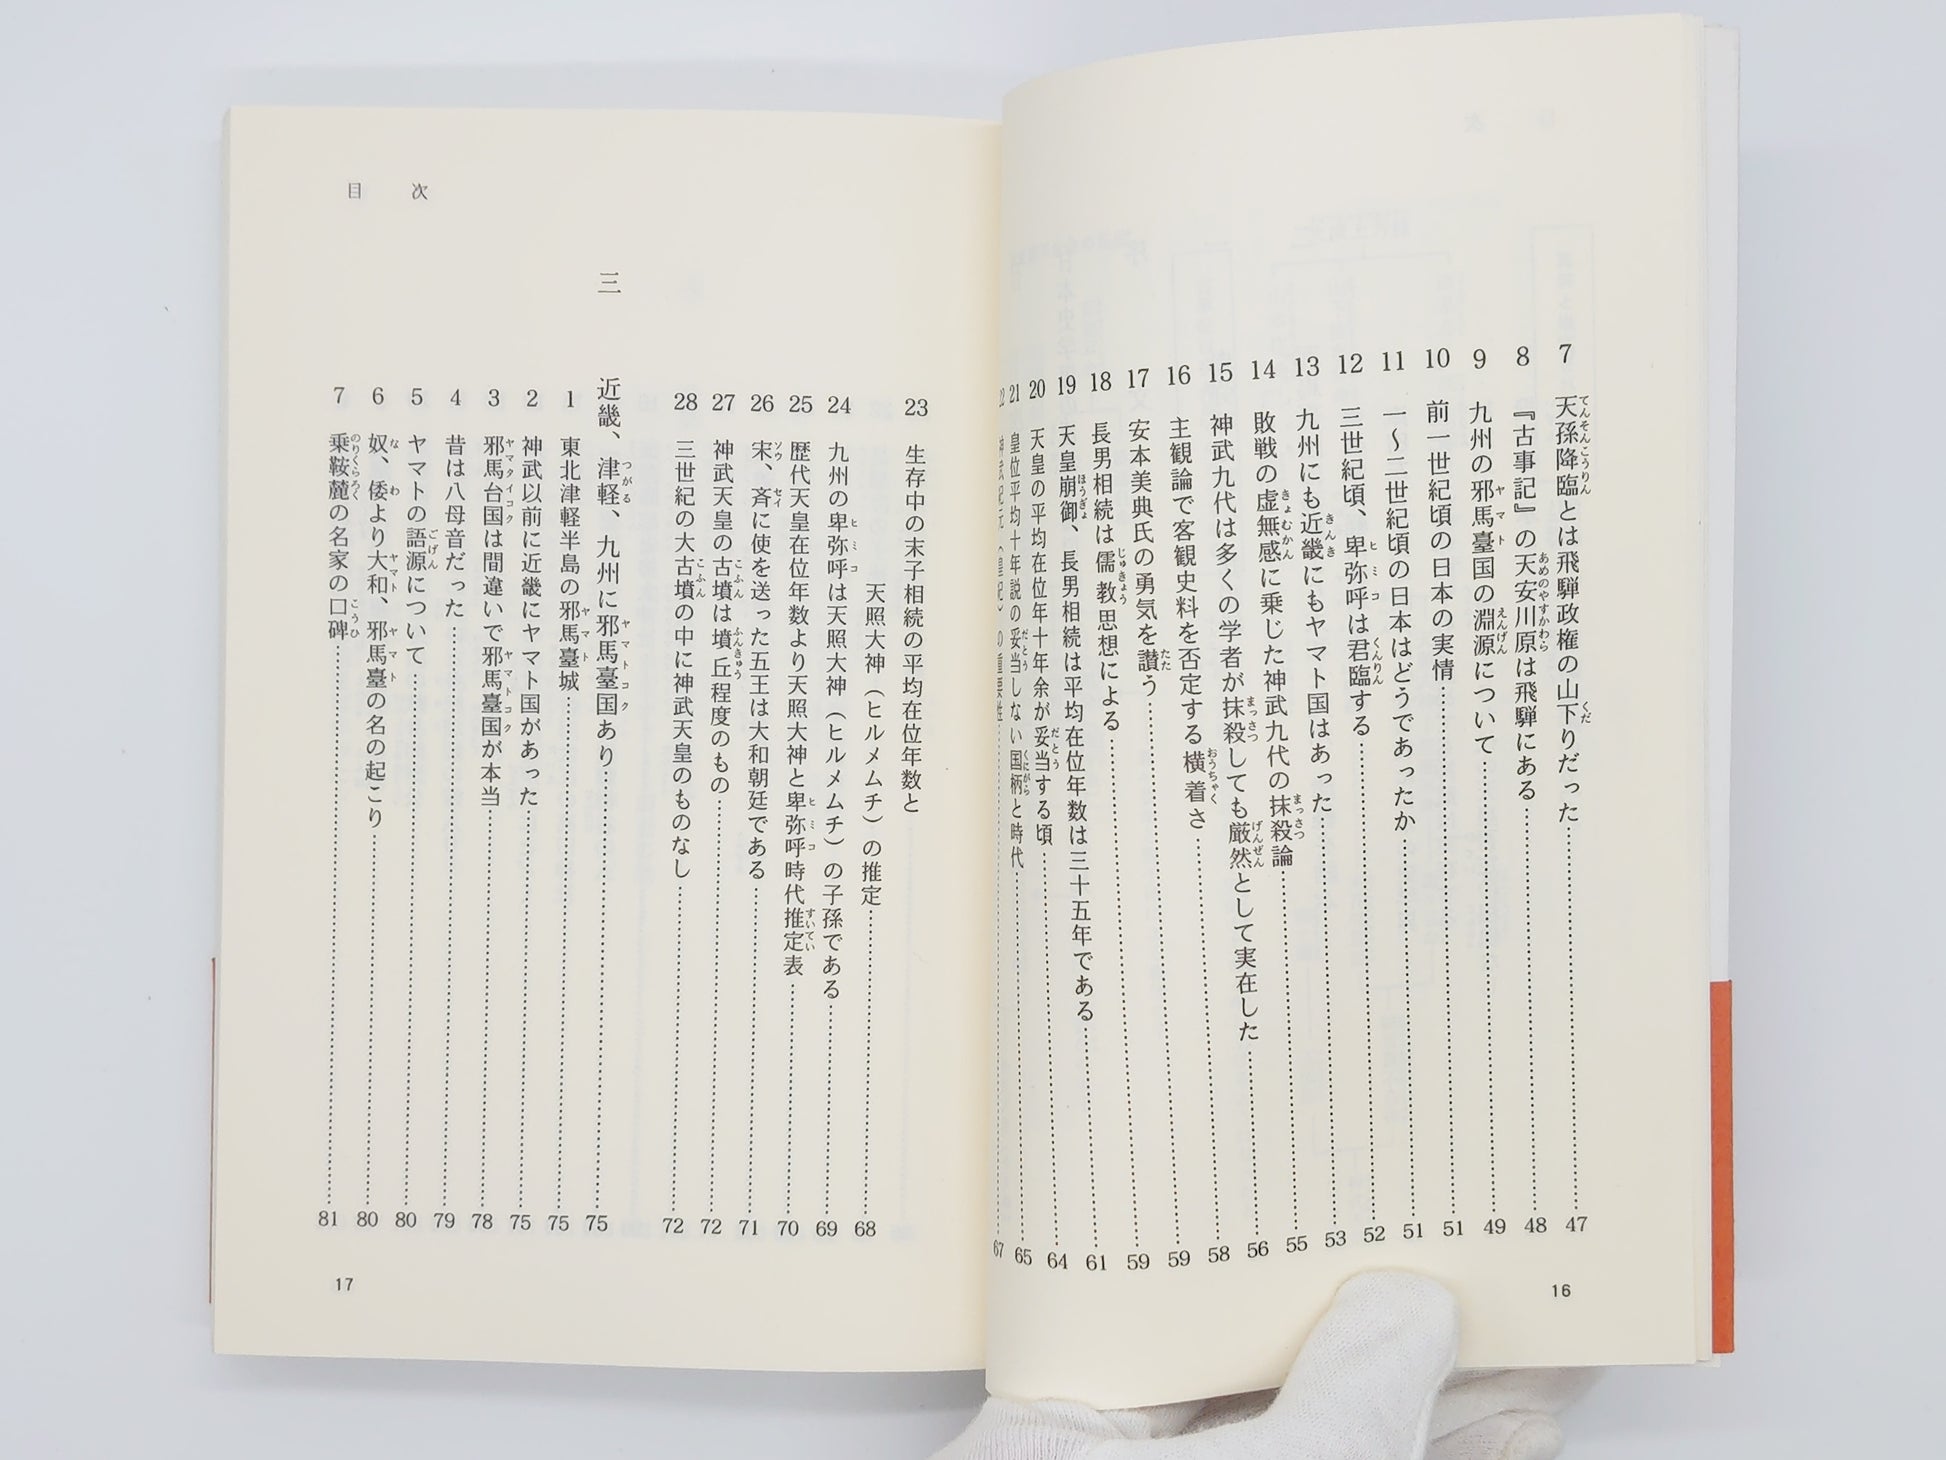 7 天孫降臨とは飛騨政権の山下りだった……47
8 『古事記』の天安川原は飛騨にある……48
9 九州の邪馬臺国の淵源について……49
10 前一世紀頃の日本の実情……51
11 一～二世紀頃の日本はどうであったか……51
12 三世紀頃、卑弥呼は君臨する……52
13 九州にも近畿にもヤマト国はあった……53
14 敗戦の虚無感に乗じた神武九代の抹殺論……55
15 神武九代は多くの学者が抹殺しても厳然として実在した……56
16 主観論で客観史料を否定する横着さ……58
17 安本美典氏の勇気を讃う……59
18 長男相続は儒教思想による……59
19 天皇崩御、長男相続は平均在位年数は三十五年である……61
20 天皇の平均在位年十年余が妥当する頃……64
21 皇位平均十年説の妥当しない国柄と時代……65
22 神武紀元（皇紀）の重要性……67
16
目次
23 生存中の末子相続の平均在位年数と
天照大神（ヒルメムチ）の推定……68
24 九州の卑弥呼は天照大神（ヒルメムチ）の子孫である……69
25 歴代天皇在位年数より天照大神と卑弥呼時代推定表……70
26 宋、斉に使を送った五王は大和朝廷である……71
27 神武天皇の古墳は墳丘程度のもの……72
28 三世紀の大古墳の中に神武天皇のものなし……72
三 近畿、津軽、九州に邪馬臺国あり……75
1 東北津軽半島の邪馬臺城……75
2 神武以前に近畿にヤマト国があった……75
3 邪馬台国は間違いで邪馬臺国が本当……78
4 昔は八母音だった……79
5 ヤマトの語源について……80
6 奴、倭より大和、邪馬臺の名の起こり……80
7 乗鞍麓の名家の口碑……81
17